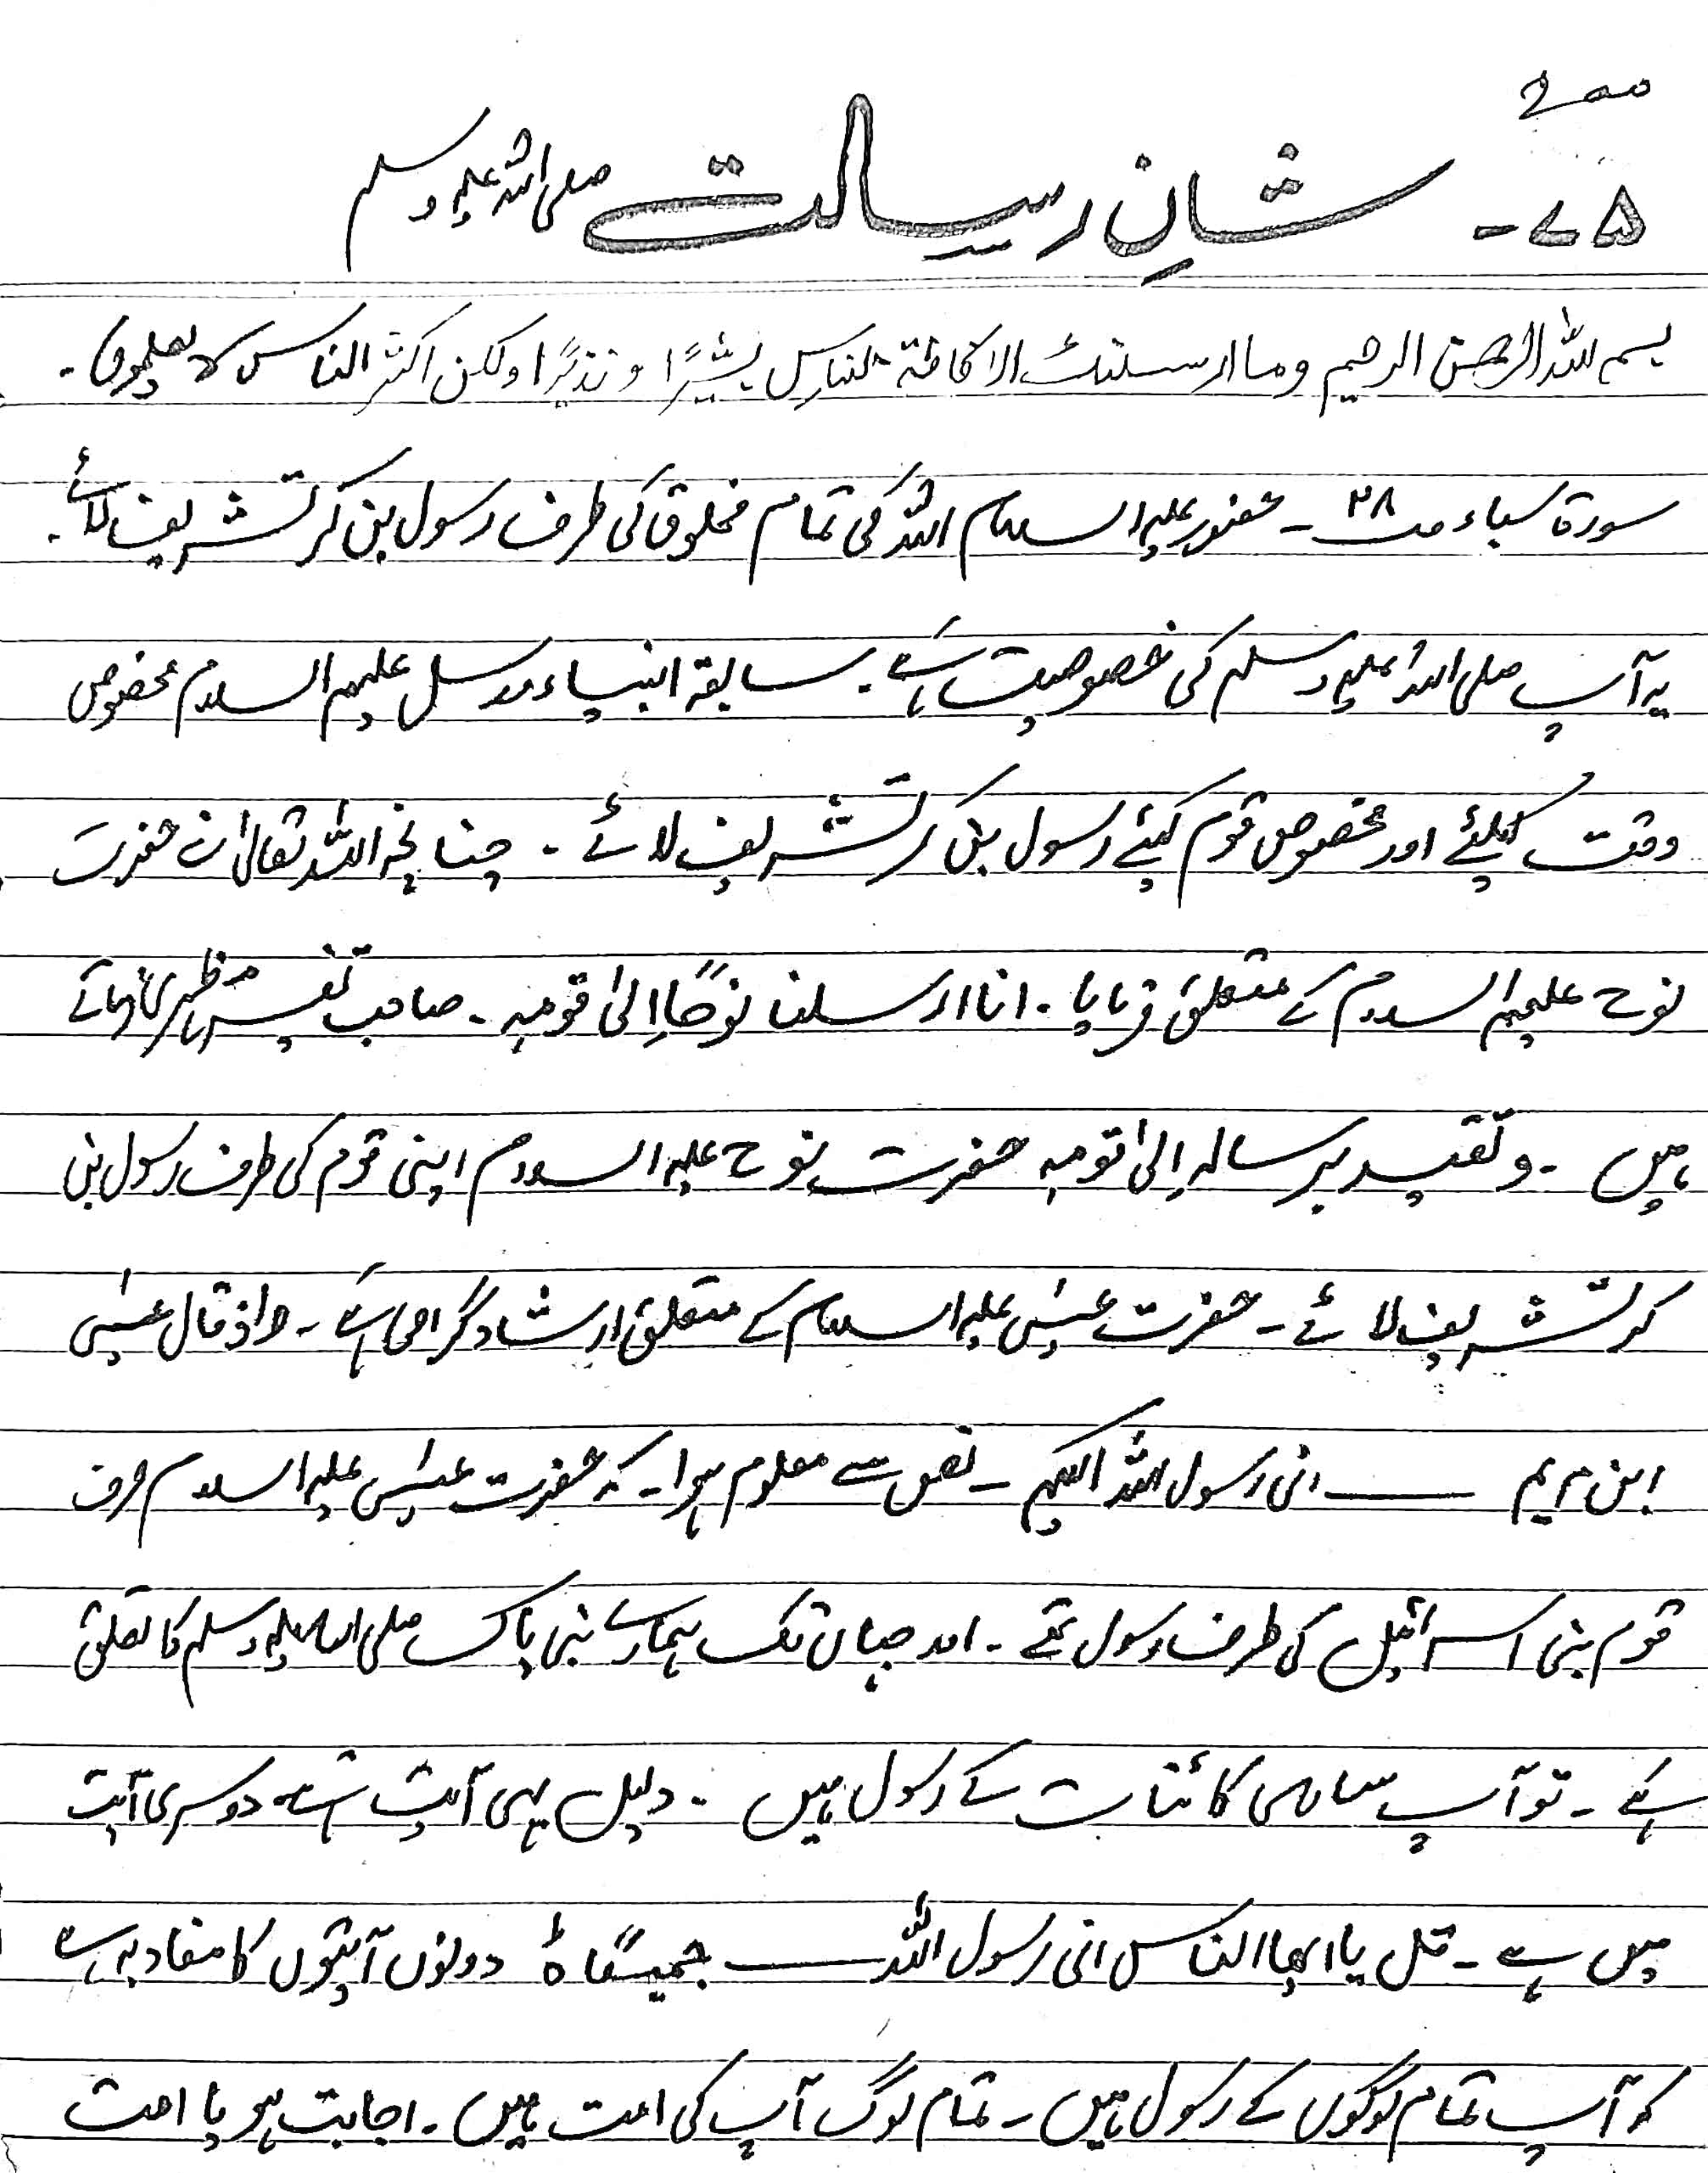 ۷۵ - شانِ رسالت صلی اللہ علیہ وسلم
بسم اللہ الرحمن الرحیم وما ارسلنٰک الا کافۃ للناسِ بشیرًا و نذیرًا ولکن اکثر الناس لا یعلمون ۔
سورۃ سباء ۲۸ ۔ حضور علیہ السلام اللہ کی تمام مخلوق کی طرف رسول بن کر تشریف لائے ۔
یہ آپ صلی اللہ علیہ وسلم کی خصوصیت ہے ۔ سابقہ انبیاء ورسل علیہم السلام مخصوص
وقت کیلئے اور مخصوص قوم کیئے رسول بن کر تشریف لائے ۔ چنانچہ اللہ تعالیٰ نے حضرت
نوح علیہم السلام کے متعلق فرمایا ۔ انا ارسلنا نوحًا اِلیٰ قومہٖ ۔ صاحب تفسیر مظہری فرماتے
ہیں ۔ وتقیید برسالہ اِلیٰ قومہٖ حضرت نوح علیہ السلام اپنی قوم کی طرف رسول بن
کر تشریف لائے ۔ حضرت عیسیٰ علیہ السلام کے متعلق ارشاد گرامی ہے ۔ واذ قال عیسیٰ
ابن مریم ـــــ انی رسول اللہ الیکم ۔ نص سے معلوم ہوا ۔ کہ حضرت عیسیٰ علیہ السلام صرف
قوم بنی اسرائیل کی طرف رسول تھے ۔ اور جہاں تک ہمارے نبی پاک صلی اللہ علیہ وسلم کا تعلق
ہے ۔ تو آپ ساری کائنات کے رسول ہیں ۔ دلیل یہی آیت ہے ۔ دوسری آیت
میں ہے ۔ قل یا ایھا الناس انی رسول اللہ ـــــ جمیعًا ۃ دونوں آیتوں کا مفاد یہ ہے
کہ آپ تمام لوگوں کے رسول ہیں ۔ تمام لوگ آپ کی امت ہیں ۔ اجابت ہو یا امت